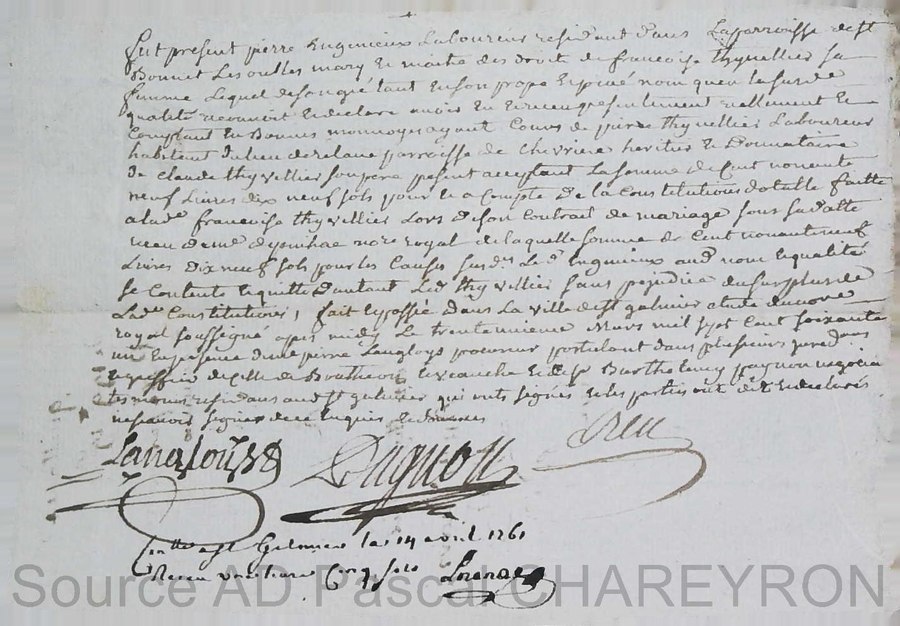 fut present pierre Enginieux Laboureur residant dans Laparroisse de st
Bonnet Les oulles mary Et maitre des droit de francoise thyvellier sa
femme Lequel de son gré tant En son propre Et privé nom quen la susde
qualité reconnoit Et declare avoir Eu Et receu presentement reallement Et
Comptant En Bonnes monnoyes ayant Cours de pierre thyvellier Laboureur
habitant du lieu de parroisse de Chevriere heritier Et Donnataire
de Claude thyvellier son pere present acceptant La somme de Cent nonente
neuf Livres dix neuf sols pour Et a Compte De la Constitutions dotalle faitte
a lade francoise thyvillier Lors de son Contrait de mariage sous sa datte
receu de me nore royal de laquelle somme de Cent nonanteneuf
Livres Dix neuf sols pour les Causes susdes Le dt Enginieux aud nom Et qualité
se Contente Et quitte Dautant Led thyvillier sans prejudice du surplus de
Lade Constitutions, fait Et passé Dans La ville de st galmier Etude du nore
royal soussigné apres midy Le trente unieme Mars mil sept Cent soixante
un En presence de me pierre Langloys procureur postulant dans plusieurs juridons
de Bouthéon Et veauche Et de sr Barthelemy pagnon negociant
tesmoins residans audt st galmier qui ont signés Et les parties ont dit Et declarés
ne scavoir signer de ce Enquis Et
Langloys
Pagnon
Controllé a st Galmier le 14 avril 1761
Receu Cinq sols